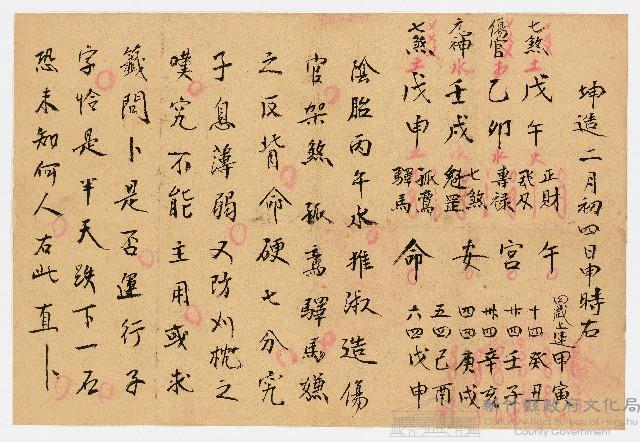 坤造二月初四日申時右
七煞 土 戊午 火 正財 飛刃
傷官 木 乙卯 木 專祿
元神 水 壬戌 土 七煞 魁罡
七煞 土 戊申 孤鸞 驛馬
午宮安命
四歲上運甲寅
十四癸丑
廿四壬子
卅四辛亥
四四庚戌
五四己酉
六四戊申
陰胎丙午水推淑造傷
官架煞孤鸞驛馬嫌
之反背命硬七分究
子息薄弱又防刈枕之
嘆究不能主用或求
籤問卜是否運行子
字恰是半天跌下一石
恐未知何人右此直卜
新竹縣政府文化局
Cultural Affairs Bureau of Hsinchu
County Government